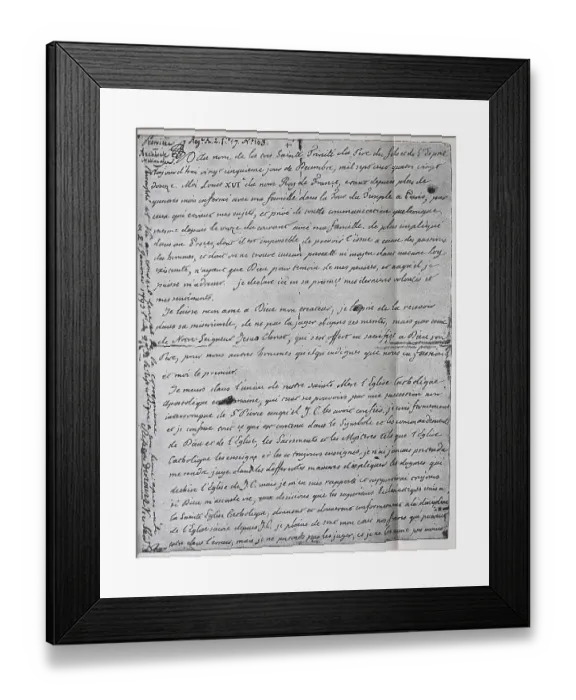 Au nom de la tres Sainte Trinité du Pere du fils et du St Esprit
aujourd'hui vingt cinquieme jour de Decembre, mil sept cent quatre vingt
douze. Moi Louis XVI du nom Roy de France, etant depuis plus de
quatre mois enfermé avec ma famille dans la Tour du Temple a Paris, par
ceux qui etoient mes sujets, et privé de toutte communication quelconque,
mesme depuis le onze du courant avec ma famille. de plus impliqué
dans un Procès, dont il est impossible de prevoir l'issue a cause des passions
des hommes, et dont on ne trouve aucun pretexte ni moyen dans aucune Loy
existante, n'ayant que Dieu pour temoin de mes pensées, et auquel je
puisse m'adresser. je declare ici en sa presence mes dernieres volontés et
mes sentiments.
Je laisse mon ame a Dieu mon createur, je le prie de la recevoir
dans sa misericorde, de ne pas la juger d'apres ses merites, mais par ceux
de Notre Seigneur Jesus Christ, qui s'est offert en sacrifice a Dieu son
Pere, pour nous autres hommes quelqu'indignes que nous en fussions
et moi le premier.
Je meurs dans l'union de notre sainte Mere l'Eglise Catholique
Apostolique et Romaine, qui tient ses pouvoirs par une succession non
interrompue de St Pierre auquel J.C. les avoit confiés, je crois fermement
et je confesse tout ce qui est contenu dans le Symbole et les commandements
de Dieu et de l'Eglise, les Sacrements et les Mysteres tels que l'Eglise
Catholique les enseigne et les a toujours enseignés, je n'ai jamais pretendu
me rendre juge dans les differentes manieres d'expliquer les dogmes qui
dechire l'Eglise de J.C, mais je m'en suis rapporté et rapporterai toujours
si Dieu m'accorde vie, aux decisions que les superieurs Ecclesiastiques unis a
la Sainte Eglise Catholique, donnent et donneront conformement a la discipline
de l'Eglise suivie depuis J.C. je plains de tout mon cœur nos freres qui peuvent
estre dans l'erreur, mais je ne pretends pas les juger, et je ne les aime pas moins